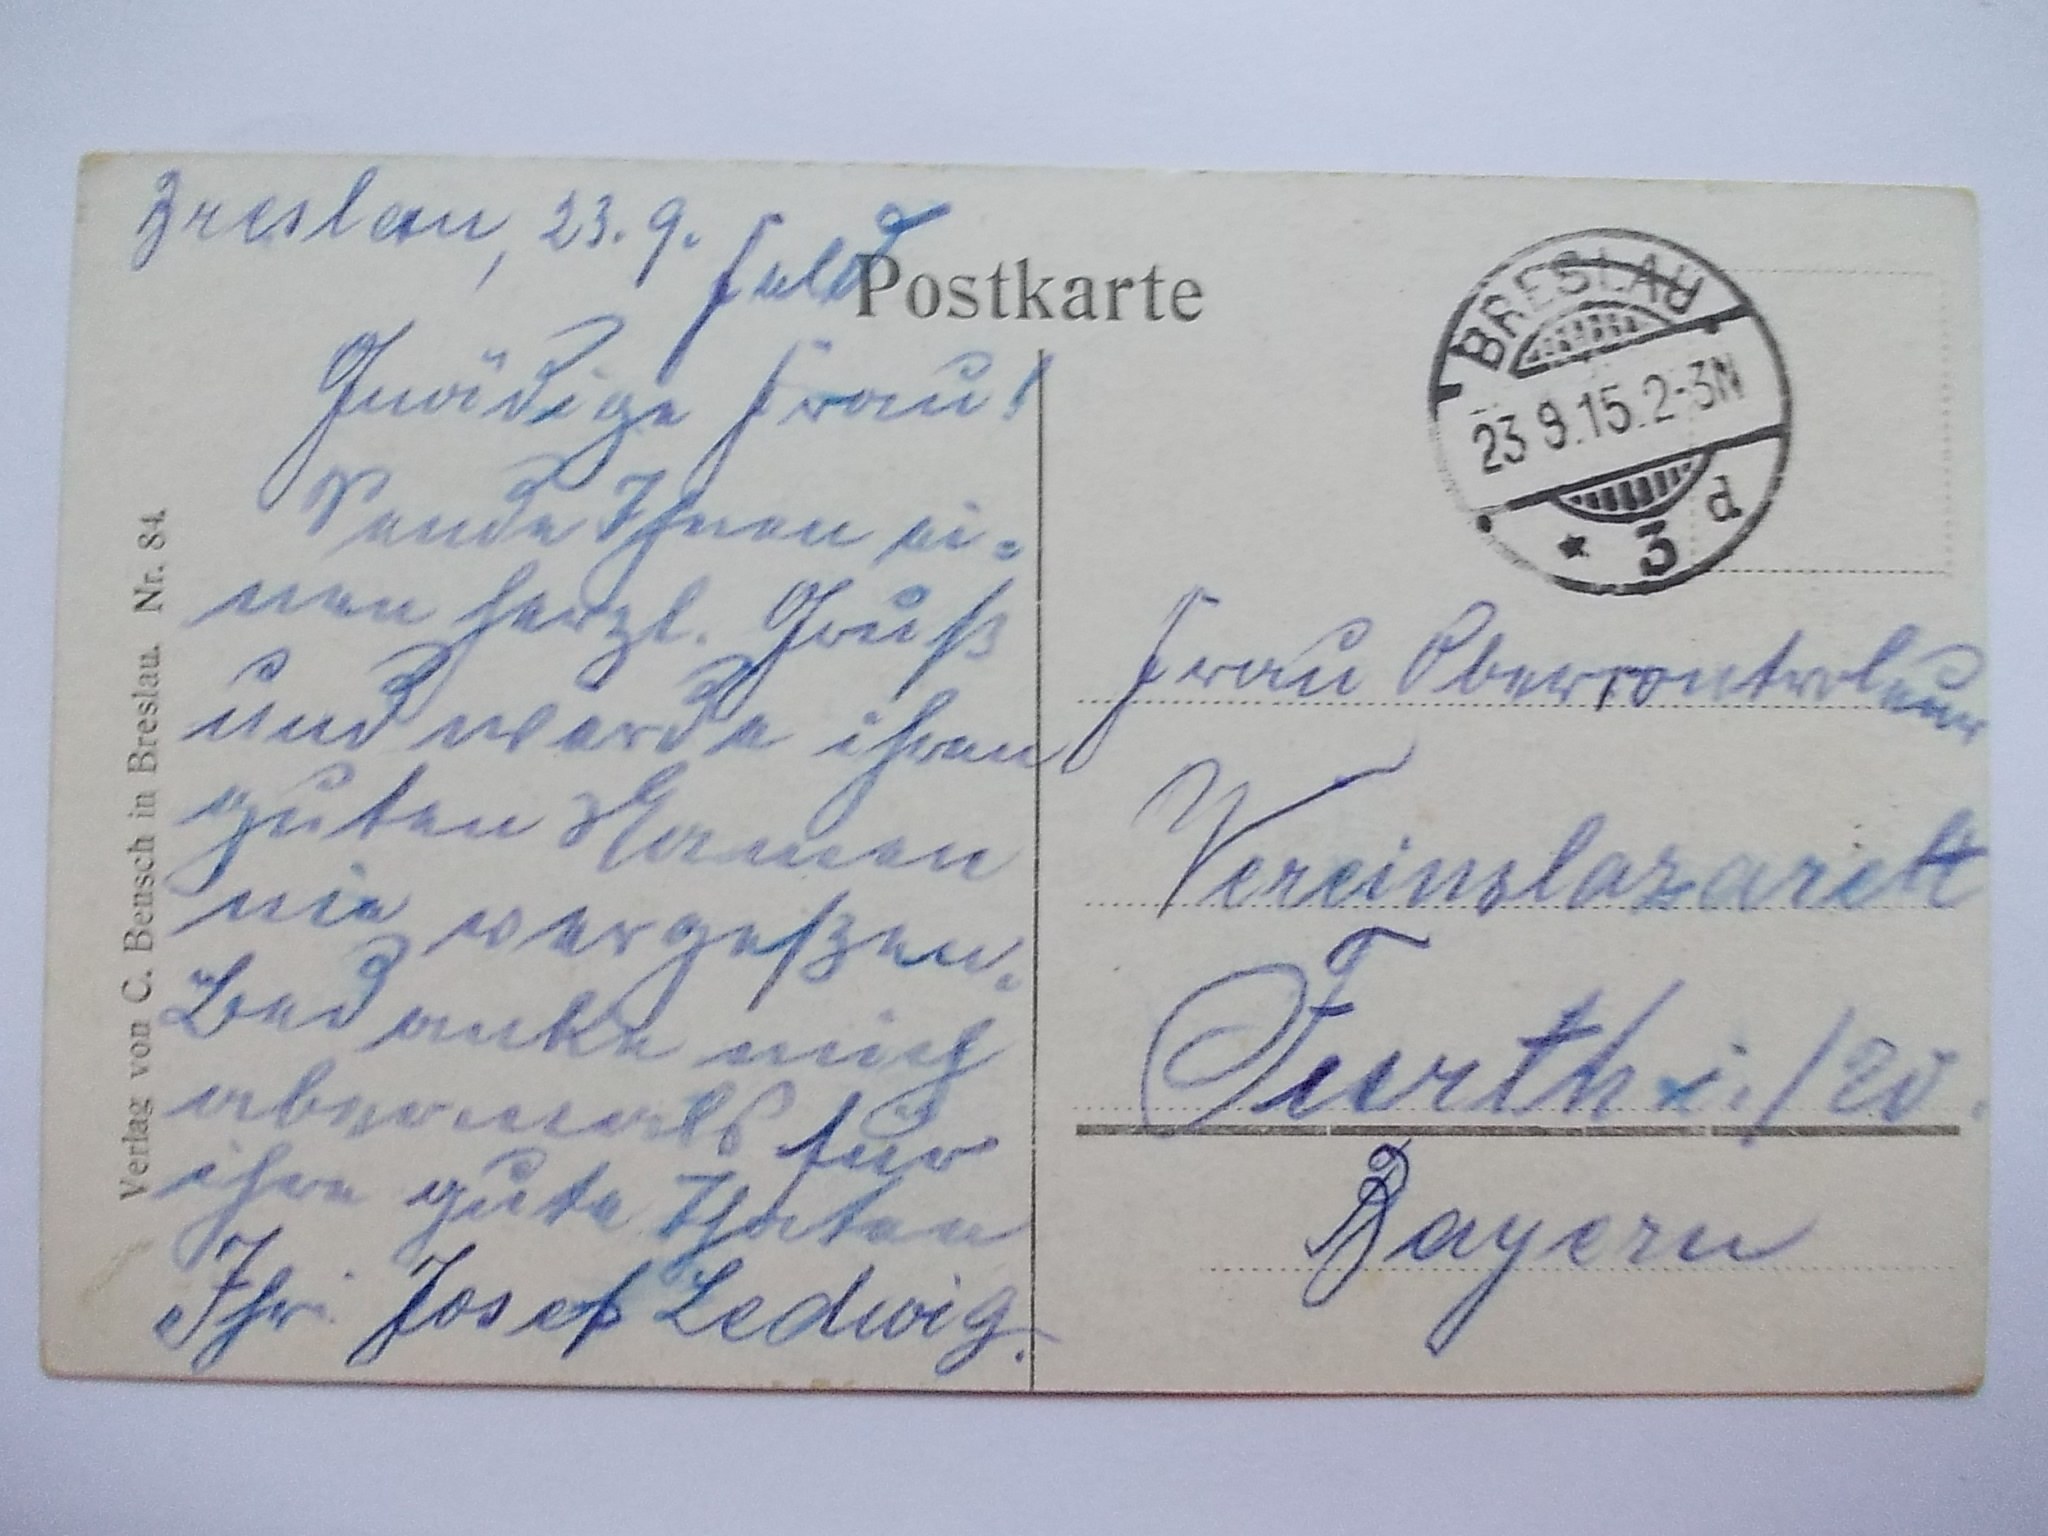 Breslau, 23. 9.
Feld
Postkarte
Gnädige Frau!
Sende Ihnen ei-
nen herzl. Gruß
und werde ihren
guten Namen
nie vergeßen.
Bedanke mich
abermals für
ihre gute Thaten
Ihr. Josef Ledwig.
Verlag von C. Beusch in Breslau. Nr. 84.
BRESLAU
23 9.15.2-3N
* 3 d
Frau Obercontroleur
Vereinslazarett
Furth i./W.
Bayern